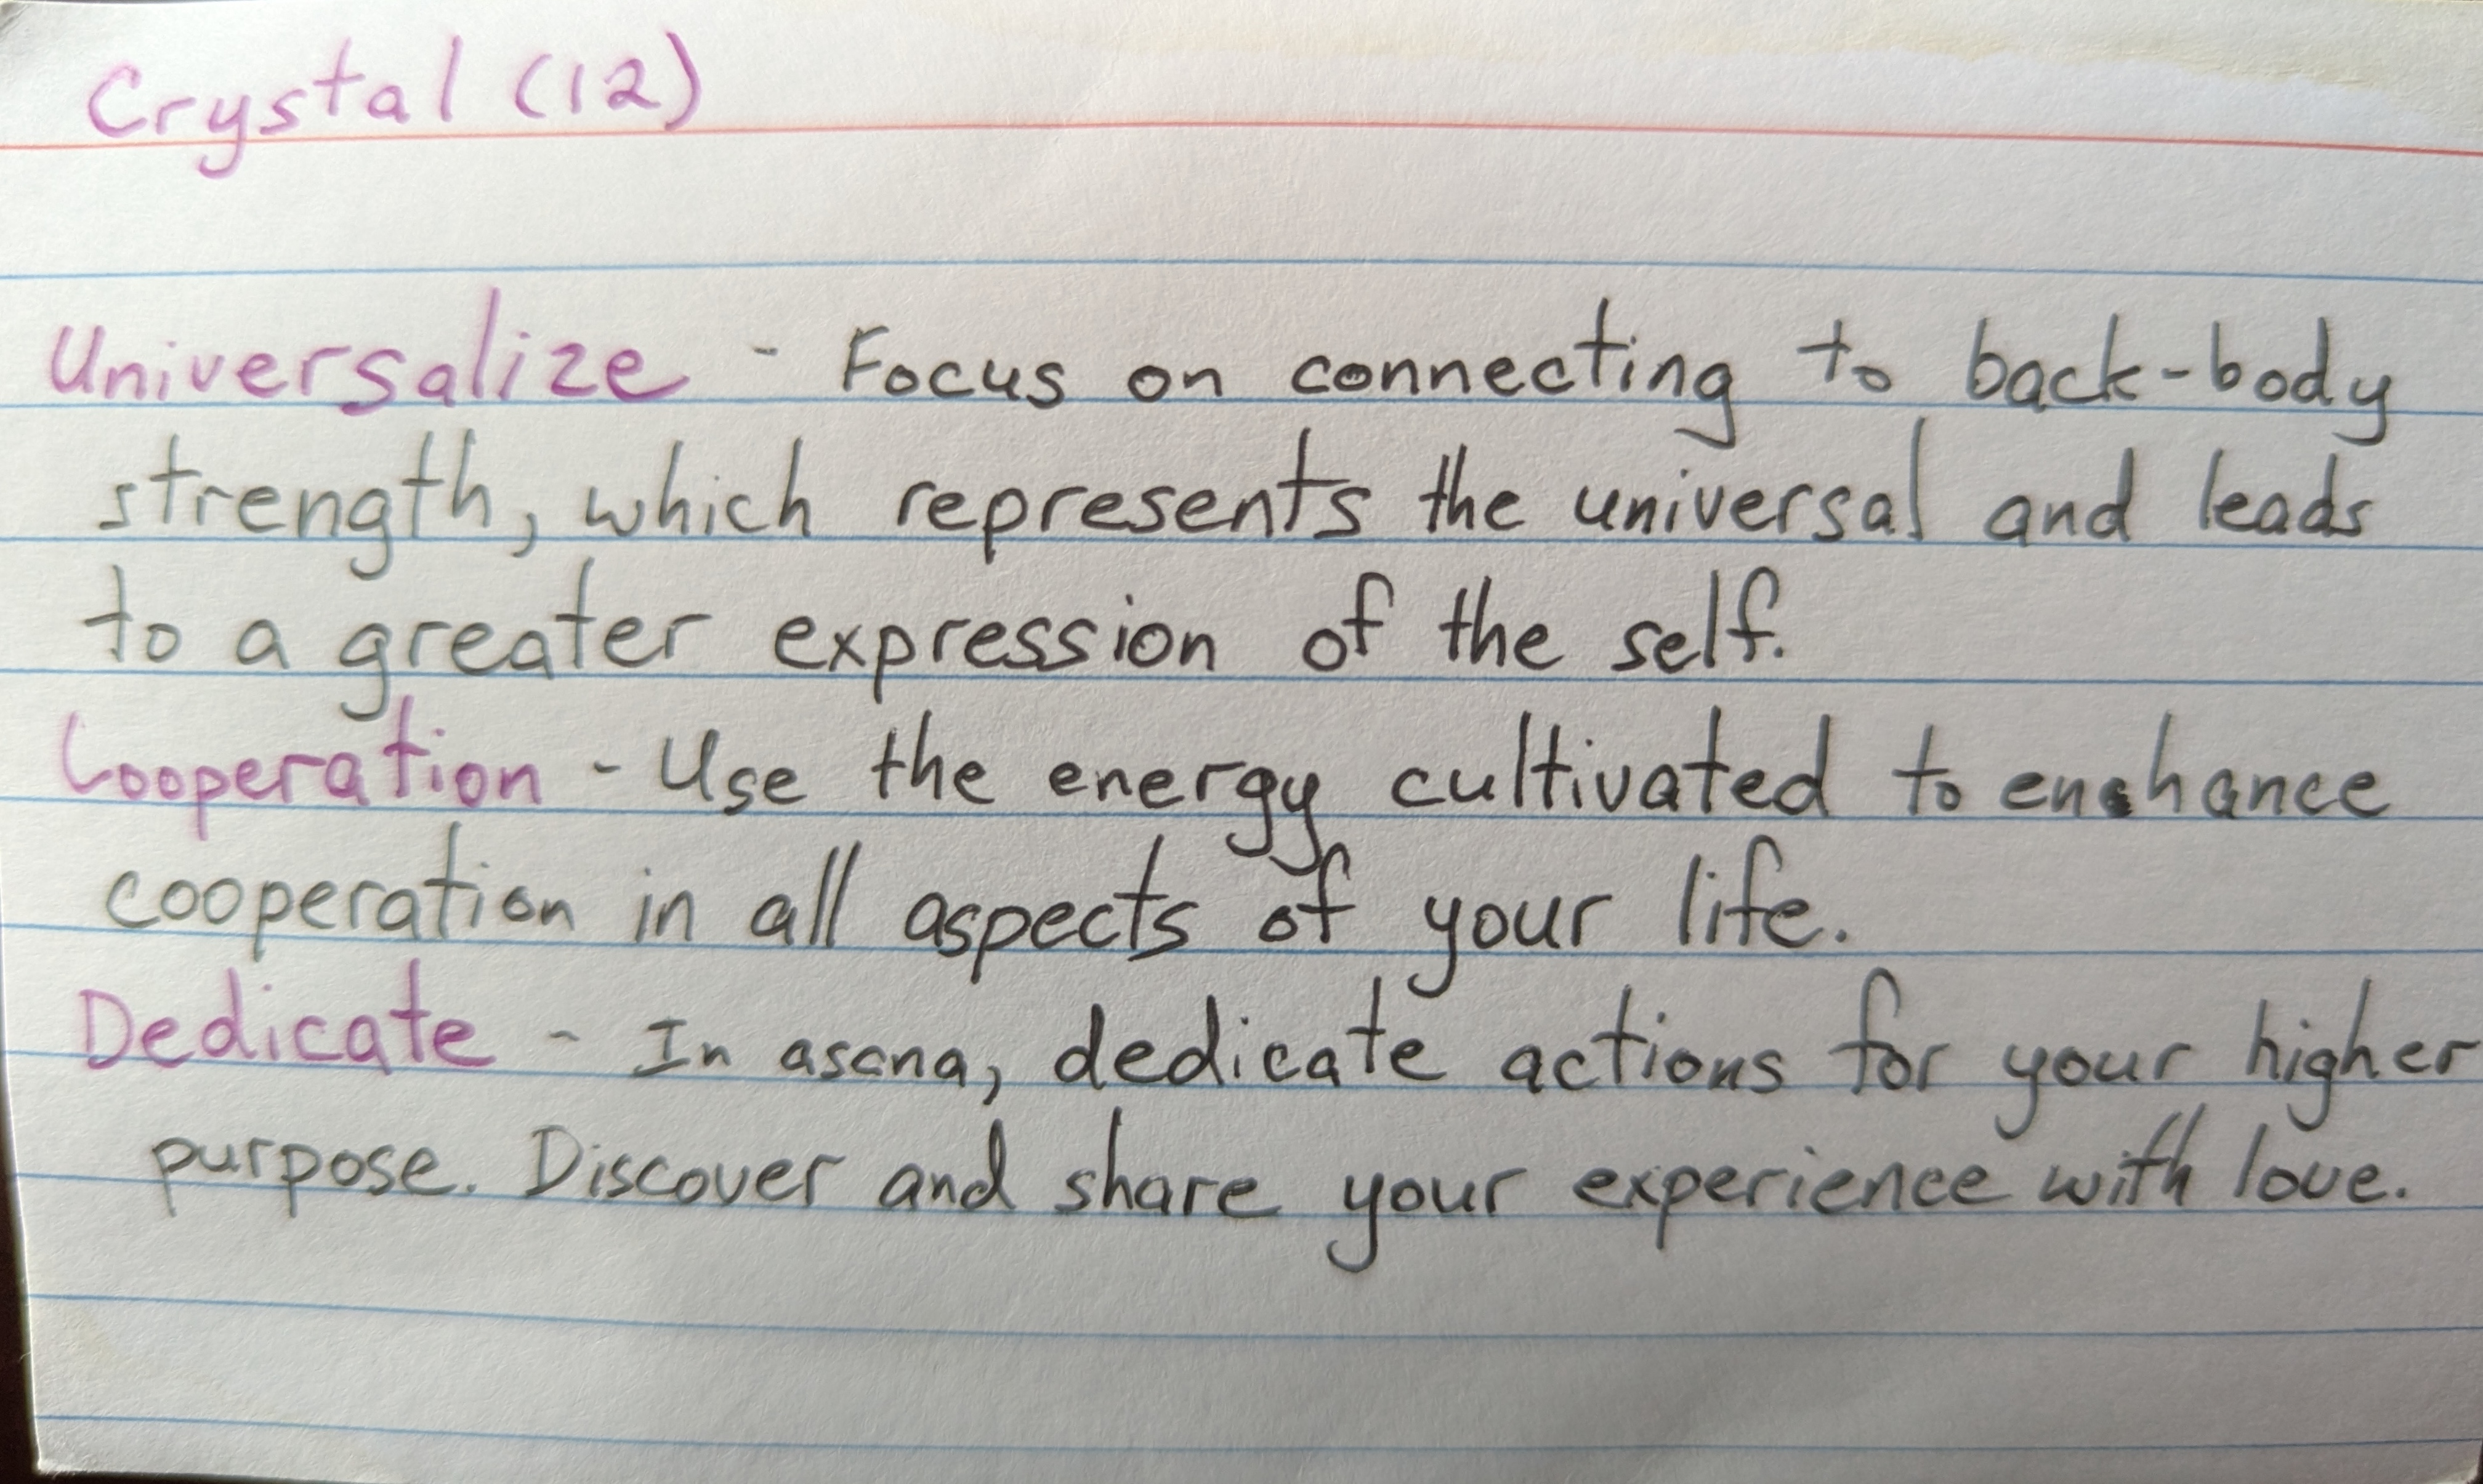 Crystal (12)
Universalize - Focus on connecting to back-body
strength, which represents the universal and leads
to a greater expression of the self.
Cooperation - Use the energy cultivated to enhance
cooperation in all aspects of your life.
Dedicate - In asana, dedicate actions for your higher
purpose. Discover and share your experience with love.